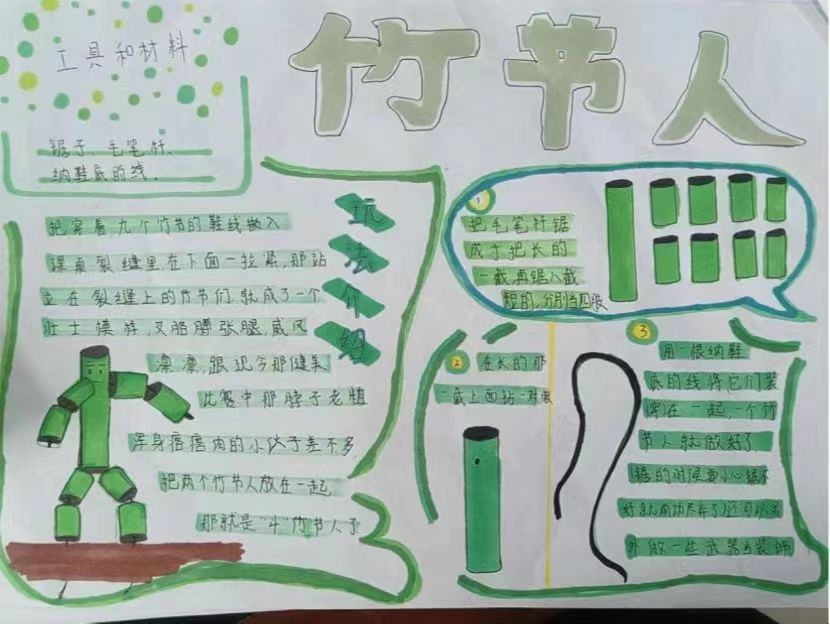 竹节人
工具和材料
锯子、毛笔杆、
纳鞋底的线.
玩法介绍
把穿着九个竹节的鞋线嵌入
课桌裂缝里,在下面一拉紧,那站
立在裂缝上的竹节们就成了一个
壮士模样,叉胳膊张腿,威风
凛凛,跟现今那健美
比赛中那脖子老粗
浑身疙瘩肉的小伙子差不多
把两个竹节人放在一起
那就是“斗”竹节人了
1
把毛笔杆锯
成寸把长的
一截,再锯八截
短的,分别当四肢
2
在长的那
一截上面钻一对眼
3
用一根纳鞋
底的线将它们装
穿在一起,一个竹
节人就做好了
锯的时候要小心锯不
好就前功尽弃了还可以另
外做一些武器当装饰